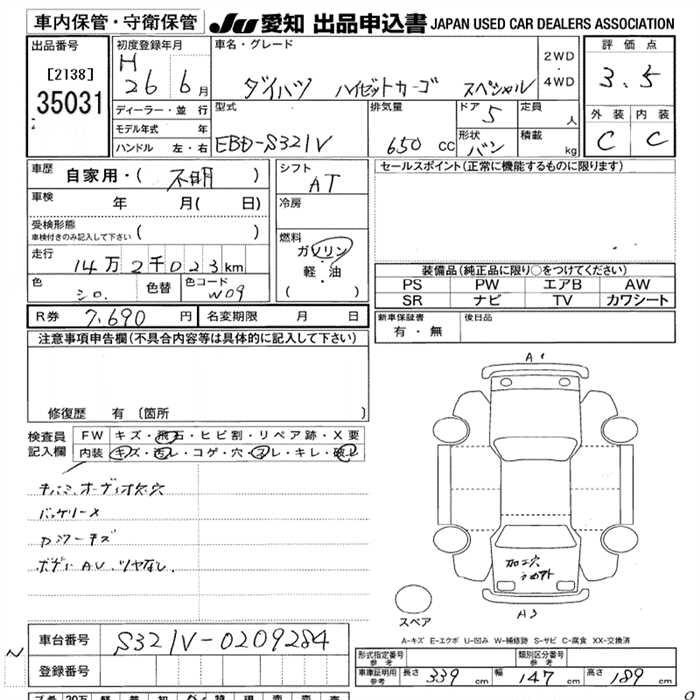 車内保管・守衛保管 JU 愛知 出品申込書 JAPAN USED CAR DEALERS ASSOCIATION
出品番号 初度登録年月 車名・グレード 2WD・4WD 評価点
[2138] H 26 6月 ダイハツ ハイゼットカーゴ スペシャル 3.5
35031 ディーラー・並行 型式 排気量 ドア 5 定員 人 外装 内装
モデル年式 年 EBD-S321V 650 cc 形状 バン 積載 kg C C
ハンドル 左・右
車歴 自家用・( 不明 ) シフト AT セールスポイント(正常に機能するものに限ります)
車検 年 月( 日) 冷房
受検形態
車検付きのみ記入して下さい ( )
燃料 ガソリン・軽・油 ( )
走行 14万2千023km
色 シロ. 色替 色コード W09
装備品(純正品に限り○をつけてください)
PS PW エアB AW
SR ナビ TV カワシート
R券 7,690 円 名変期限 月 日 新車保証書 有・無 後日品
注意事項申告欄(不具合内容等は具体的に記入して下さい)
修復歴 有 (箇所 )
検査員記入欄 FW キズ・飛石・ヒビ割・リペア跡・X要
内装 キズ・汚レ・コゲ・穴・スレ・キレ・破レ
チバミ、オーディオ欠穴
バッテリーメ
Dシートキズ
ボディAU、ツヤなし.
A1
加工穴
A3
スペア
A-キズ E-エクボ U-凹み W-補修跡 S-サビ C-腐食 XX-交換済
N 車台番号 S321V-0209284
登録番号
形式指定番号 参考 類別区分番号 参考
車庫証明用 参考 長さ 339 cm 幅 147 cm 高さ 189 cm